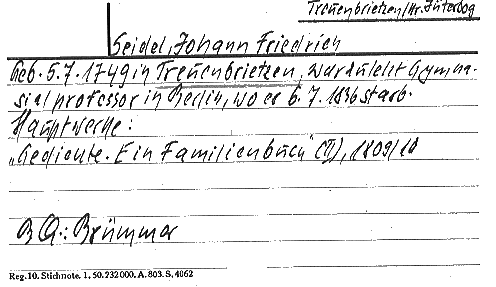 Treuenbrietzen/Kr. Jüterbog
Seidel, Johann Friedrich
Geb. 5.7.1749 in Treuenbrietzen, war zuletzt Gymna-
sialprofessor in Berlin, wo er 6.7.1836 starb.
Hauptwerke:
„Gedichte. Ein Familienbuch" (II), 1809/10
BQ.: Brümmer
Reg. 10. Stichnote. 1, 50. 232000. A. 803. S. 4062